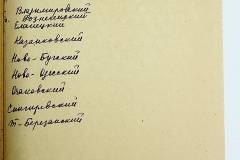 Владимировский
Вознесенский
Еланецкий
Казанковский
Ново-Бугский
Ново-Одесский
Очаковский
Снигиревский
Т-Березанский